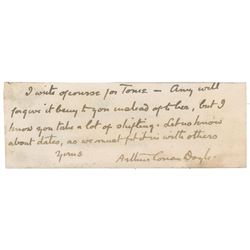 I write of course for Tonie — Amy will
forgive it being to you instead of to her, but I
know you take a lot of shifting. Let us know
about dates, as we must fit it in with others
Yours
Arthur Conan Doyle.